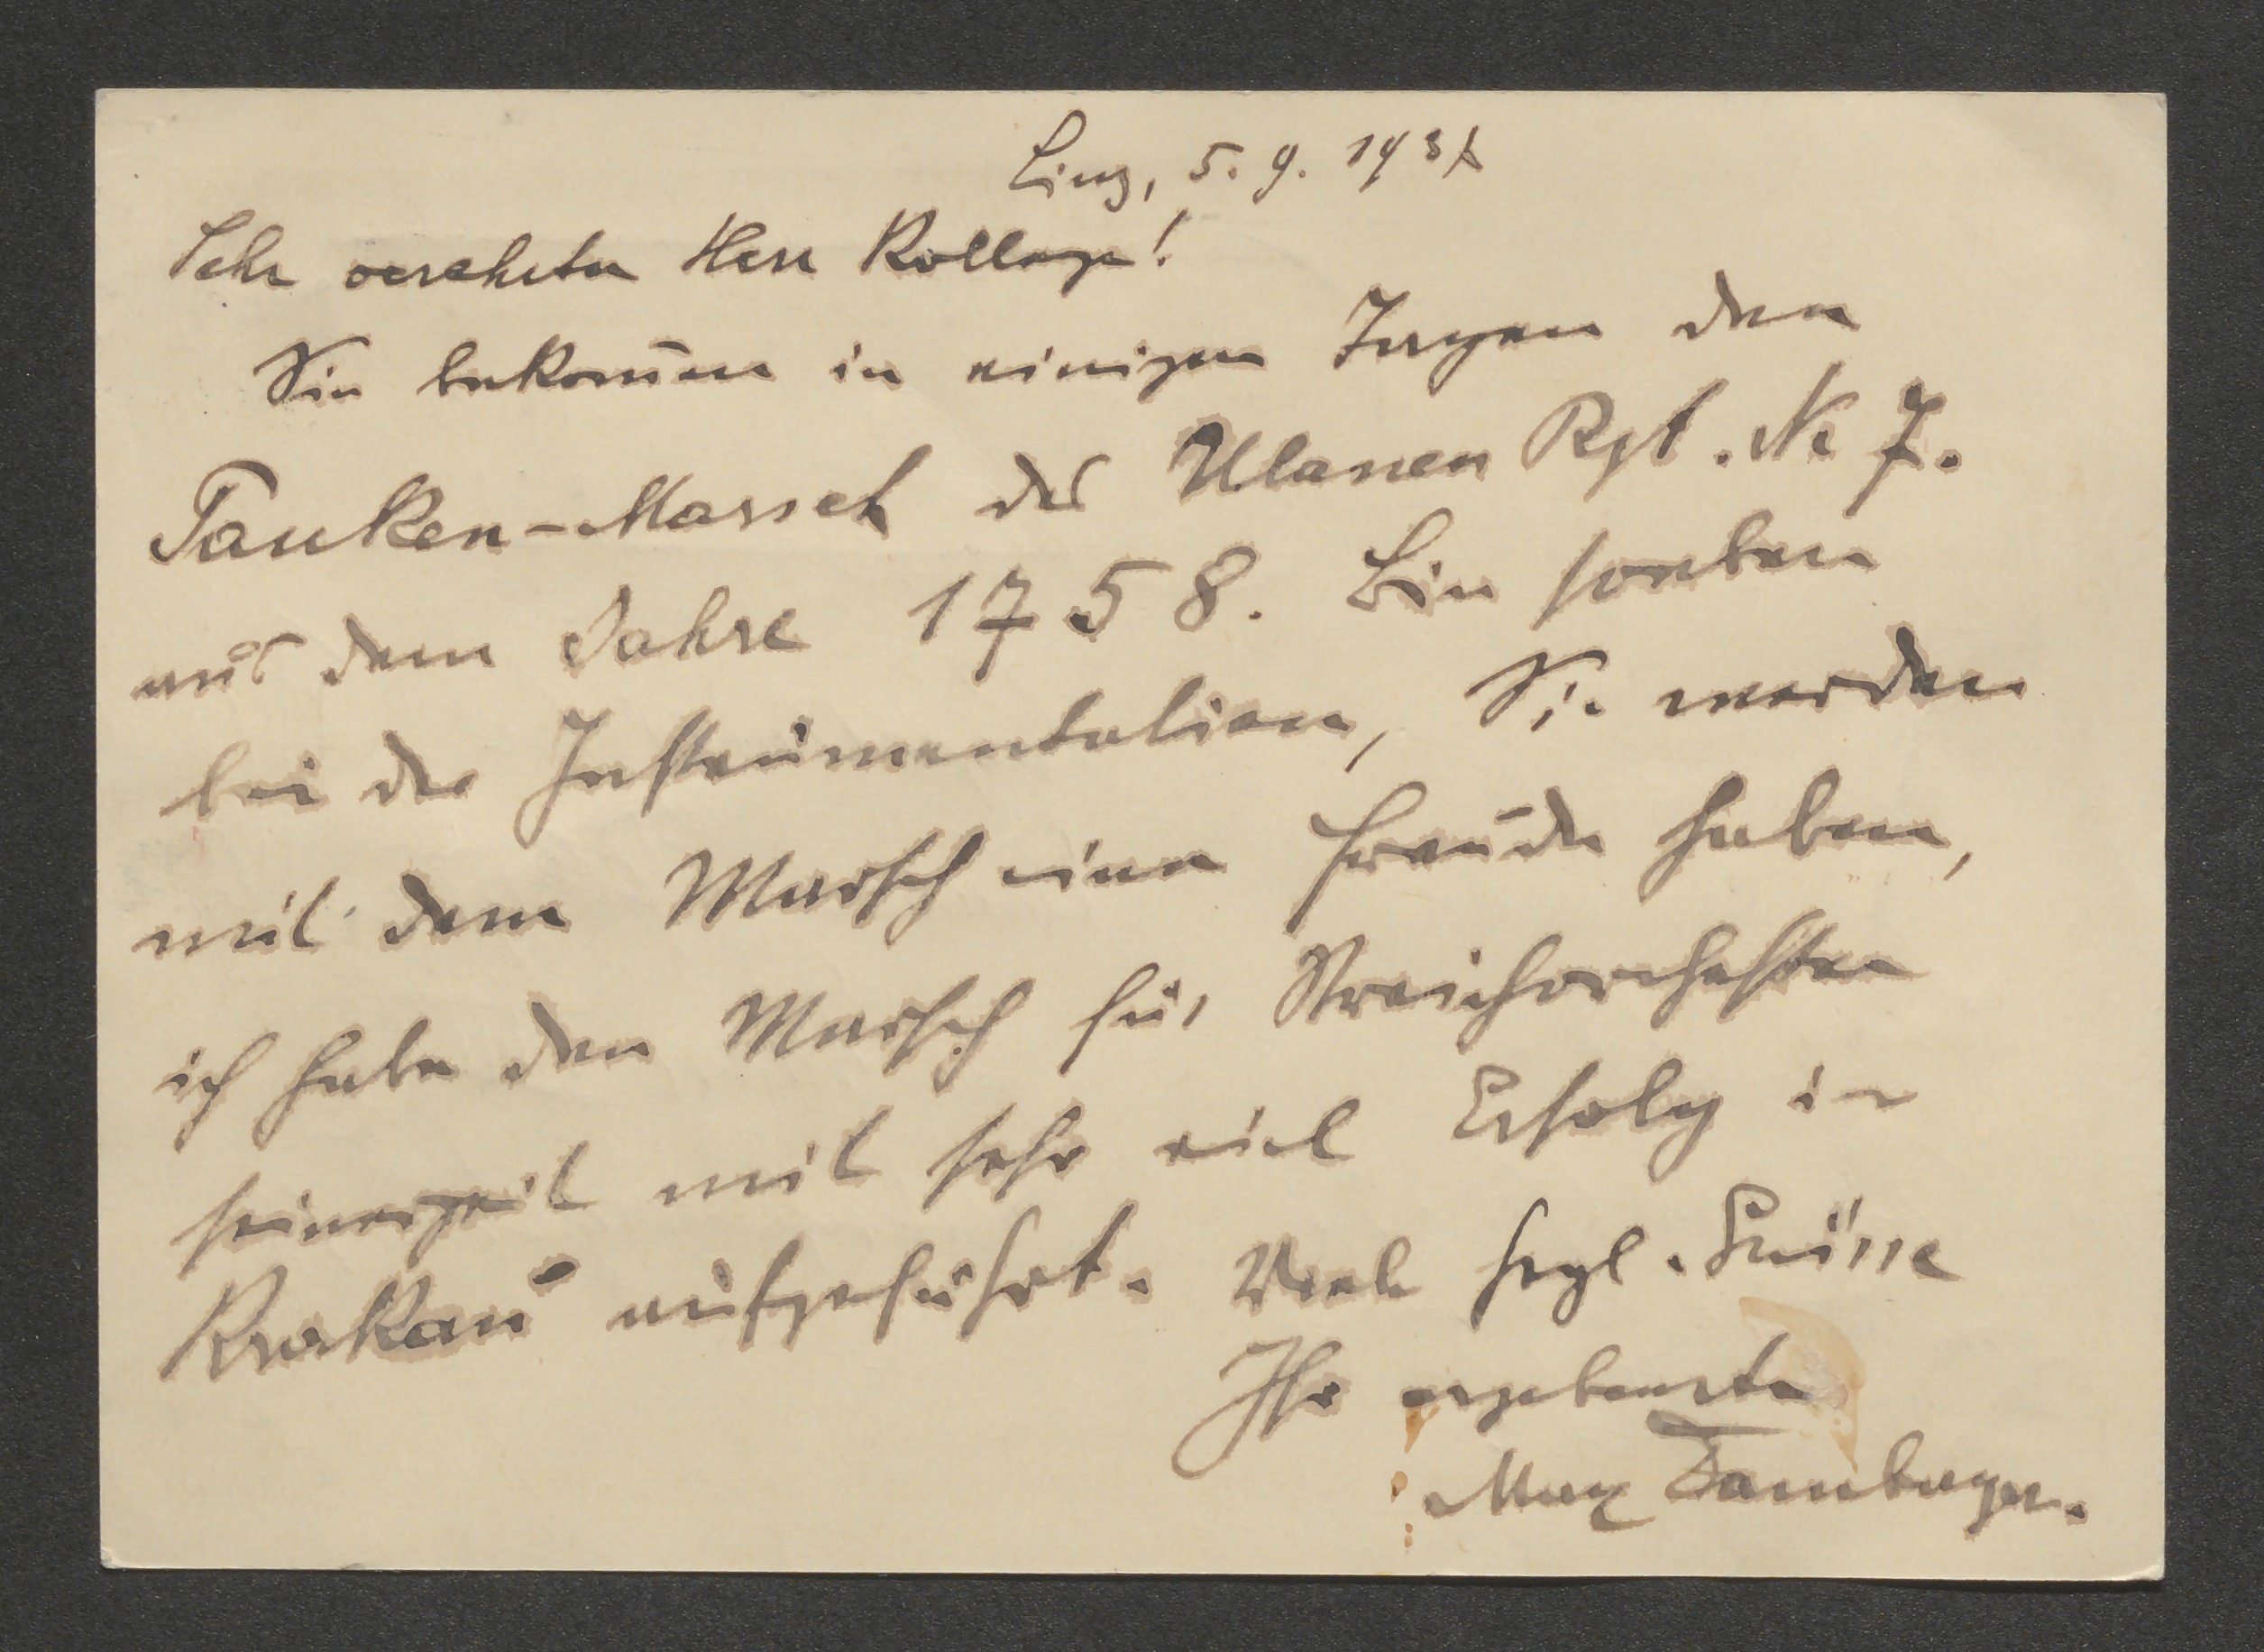 Linz, 5. 9. 193
Sehr verehrter Herr Kollege!
Sie bekom̄en in einigen Tagen den
Pauken-Marsch des Ulanen Rgt. Nr 7.
aus dem Jahre 1758. Bin soeben
bei der Instrumentation, Sie werden
mit dem Marsch eine Freude haben,
ich habe den Marsch für Streichorchester
seinerzeit mit sehr viel Erfolg in
Krakau aufgeführt. Viele hzgl. Grüsse
Ihr ergebenster
Max Damberger.